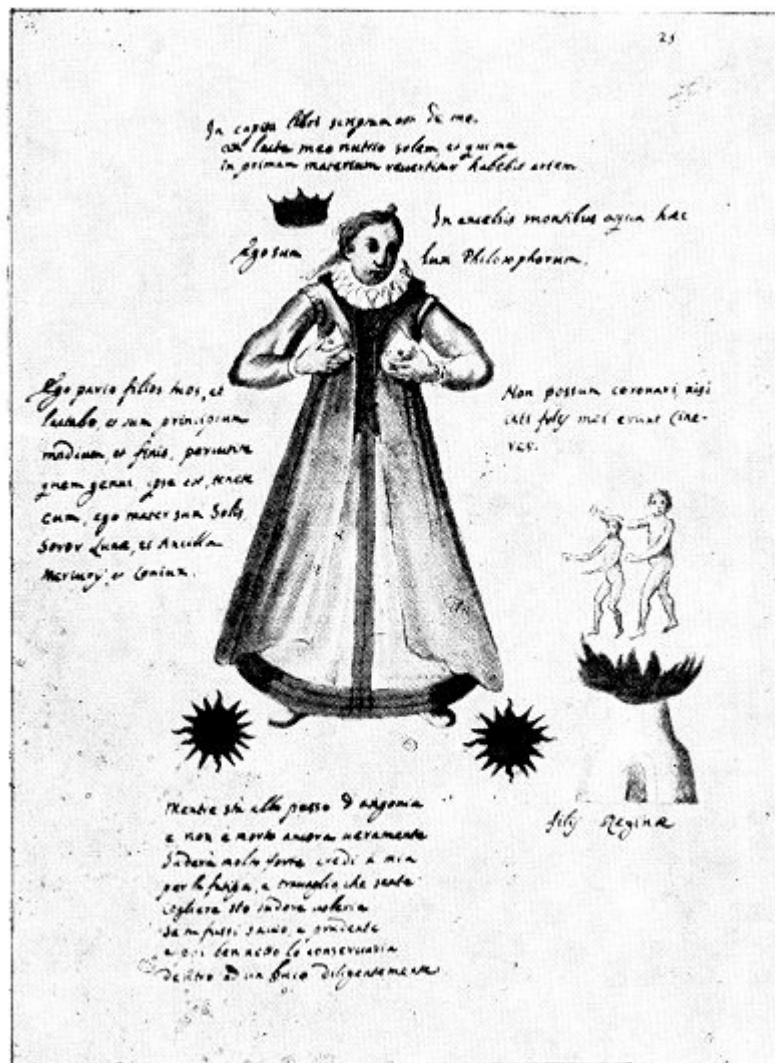 25
In capite libri scriptum est de me.
lacte meo nutrio solem, et qui me
in primam materiam revertitur habebit artem
In excelsis montibus aqua hæc
Ego sum
lux Philosophorum.
Ego pario filios meos, et
lactabo, et sum principium
medium, et finis,
quem genui, ipse est,
eum, ego mater sum Solis,
Soror Lunæ, et Ancilla
Mercurÿ, et Coniux.
Non possum coronari, nisi
isti filÿ mei erunt cine-
res.
filÿ Reginæ
Mentre sta allo passo d angonia
e non è morto ancora veramente
Suderà molto forte credi à mia
per la fatiga, e travaglio che sente
cogliere sto sudore voleria
se tu fussi savio, e prudente
e poi ben netto lo conservaria
dentro ad un buco diligentemente